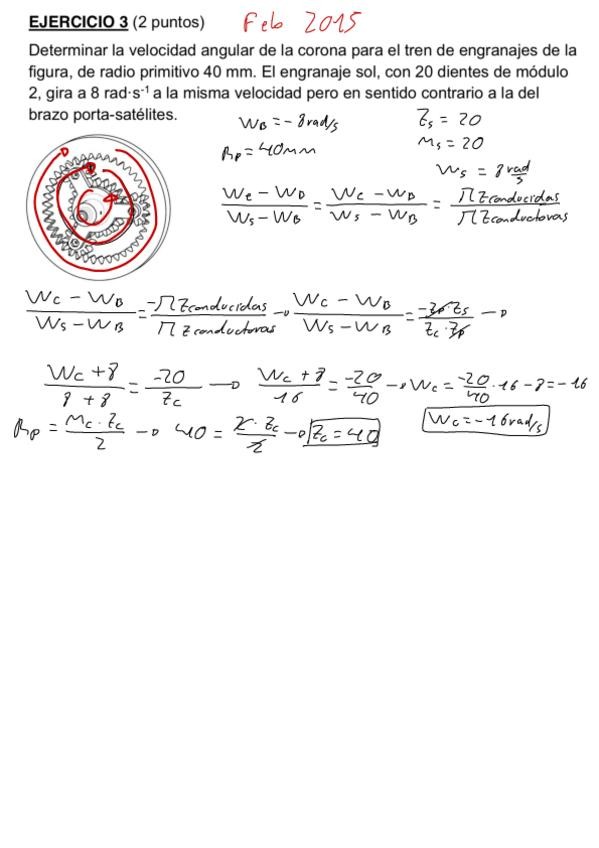 EJERCICIO 3 (2 puntos) Feb 2015
Determinar la velocidad angular de la corona para el tren de engranajes de la
figura, de radio primitivo 40 mm. El engranaje sol, con 20 dientes de módulo
2, gira a 8 rad·s⁻¹ a la misma velocidad pero en sentido contrario a la del
brazo porta-satélites.
W_B = -8 rad/s Z_s = 20
R_p = 40mm m_s = 20
W_s = 8 rad/s
(W_e - W_D)/(W_s - W_B) = (W_c - W_D)/(W_s - W_B) = ΠZconducidas/ΠZconductoras
(W_c - W_B)/(W_s - W_B) = -ΠZconducidas/ΠZconductoras → (W_c - W_B)/(W_s - W_B) = -Z_p·Z_s/Z_c·Z_p →
(W_c + 8)/(8 + 8) = -20/Z_c → (W_c + 8)/16 = -20/40 → W_c = -20/40 · 16 - 8 = -16
R_p = M_c · Z_c/2 → 40 = 2 · Z_c/2 → Z_c = 40 W_c = -16 rad/s